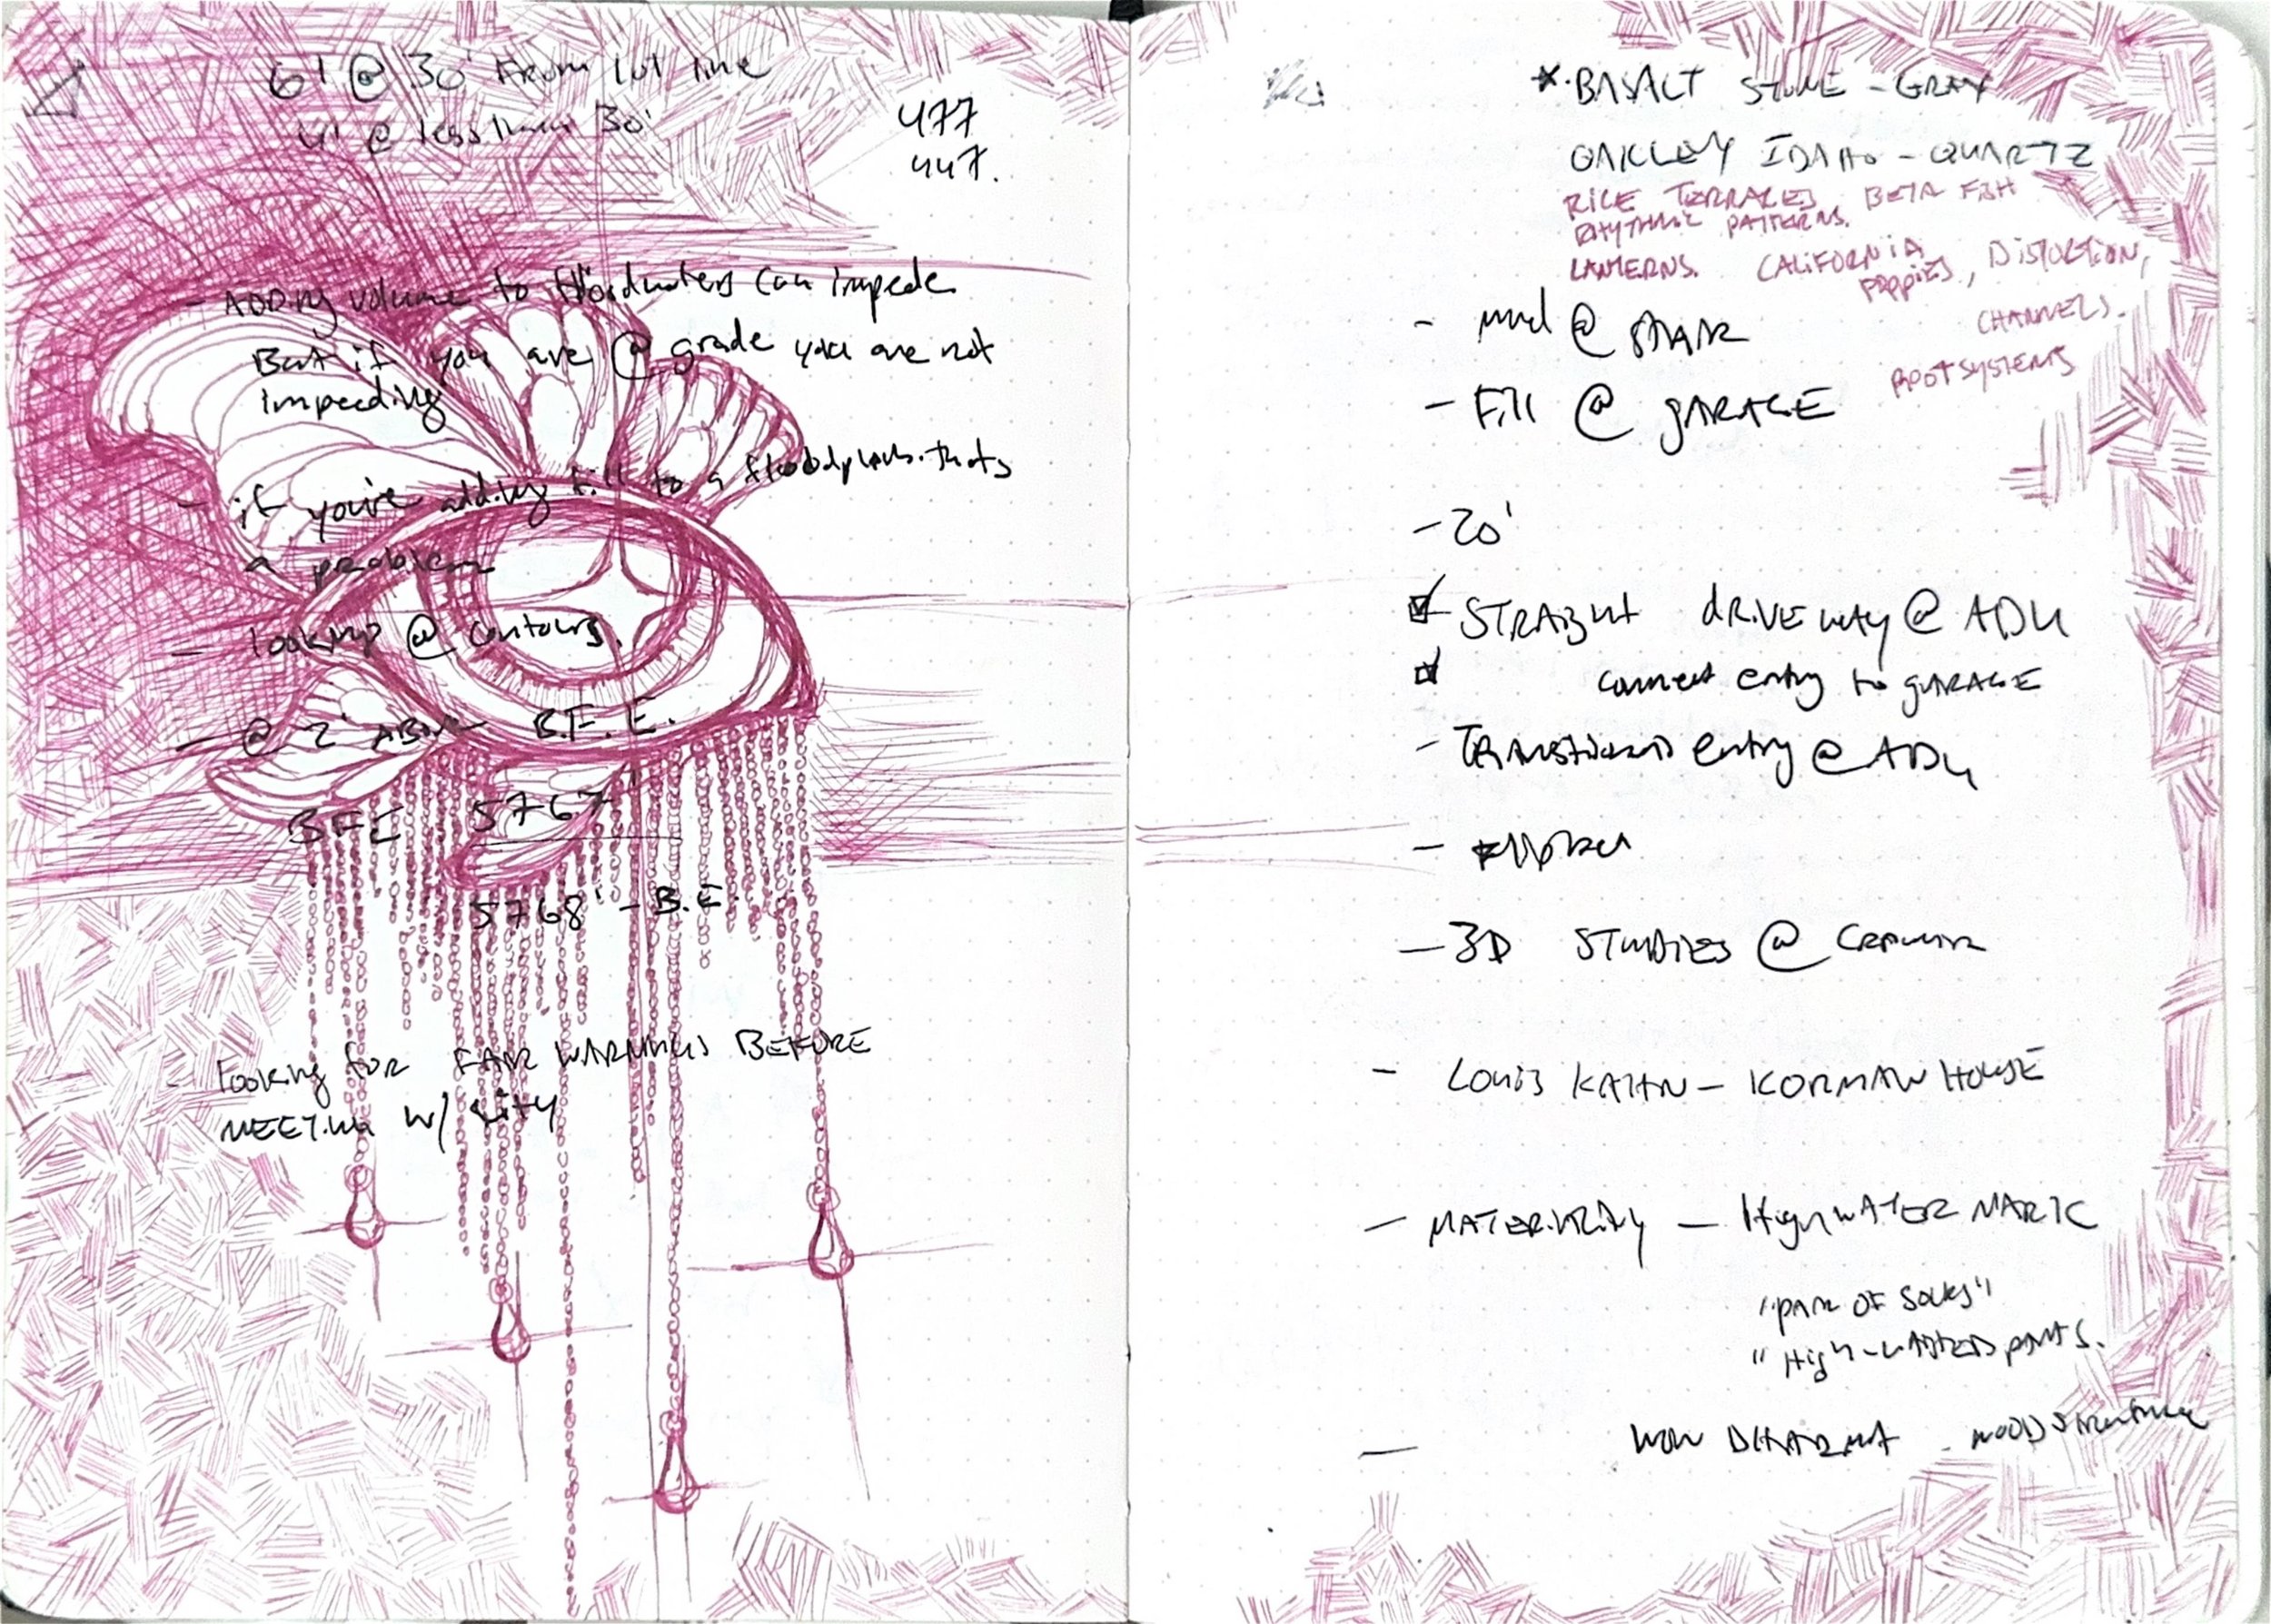 6' @ 30' From lot line
4' @ less than 30'
477
447.
- ADDing volume to floodwaters can impede
But if you are @ grade you are not
impeeding
- if you're adding fill to a floodplain. thats
a problem
- looking @ contours.
- @ 2' ABOVE B.F.E.
BFE 5767'
5768' - B.E.
- looking for FAIR WARNINGS BEFORE
MEETING w/ city
*·BASALT STONE - GRAY
OAKLEY IDAHO - QUARTZ
RICE TERRACES BETA FISH
RHYTHMIC PATTERNS.
LANTERNS. CALIFORNIA
POPPIES, DISTORTION,
CHANNELS.
ROOT SYSTEMS
- mud @ STAIR
- Fill @ GARAGE
- 20'
STRAIGHT DRIVEWAY @ ADU
connect entry to GARAGE
- TRANSITIONS entry @ ADU
- 3D STUDIES @
- LOUIS KAHN - KORMAN HOUSE
- MATERIALITY - High WATER MARK
"PAIR OF SOCKS"
"High-WAISTED PANTS.
- WON DHARMA - WOOD STRUCTURE